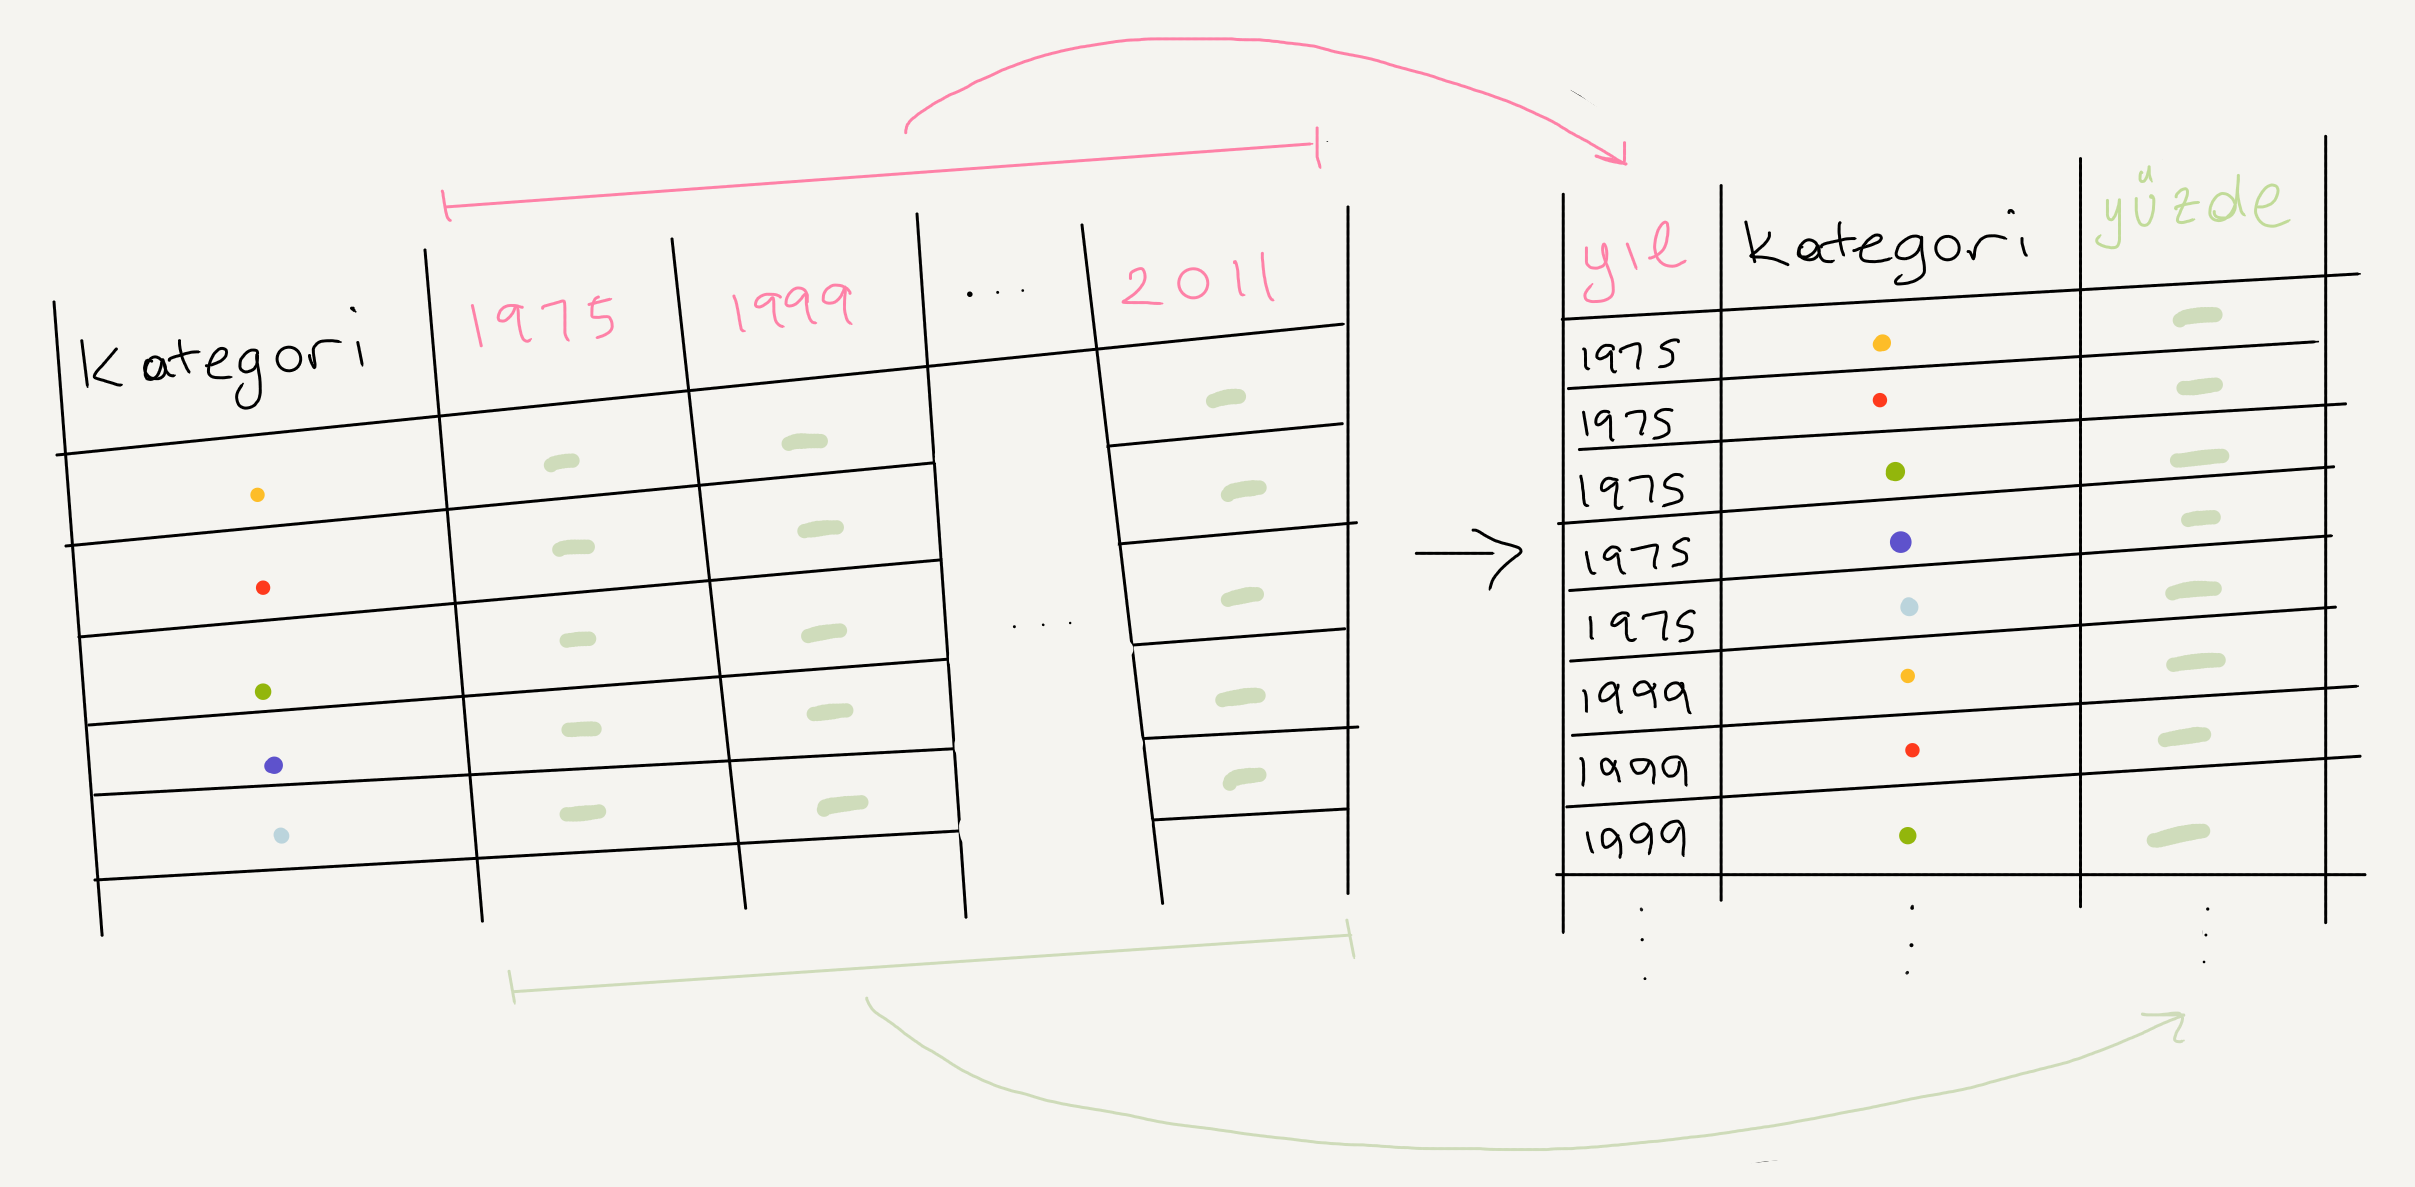 Kategori 1975 1999 ... 2011
...
yıl kategori yüzde
1975
1975
1975
1975
1975
1999
1999
1999